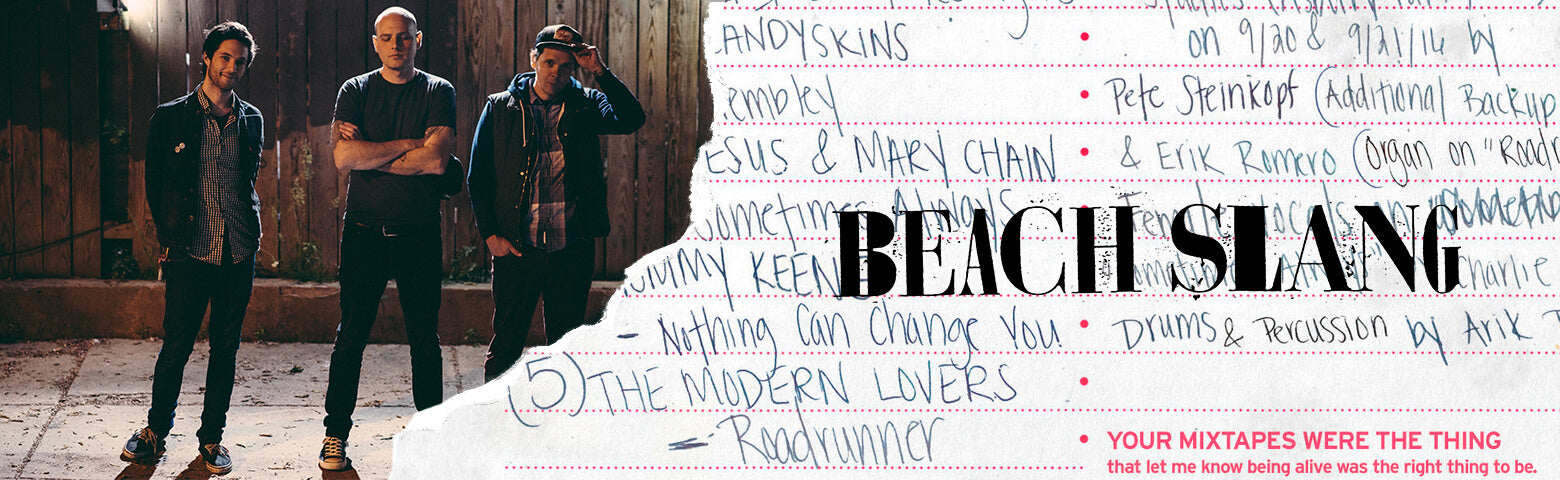 ANDYSKINS
embley
ESUS & MARY CHAIN
ometimes Always
MMY KEENE
- Nothing Can Change You
(5) THE MODERN LOVERS
- Roadrunner
on 9/20 & 9/21/16 by
Pete Steinkopf (Additional Backup
& Erik Romero (Organ on "Road
Female Vocals on
Charlie
Drums & Percussion by Arik
BEACH SLANG
YOUR MIXTAPES WERE THE THING
that let me know being alive was the right thing to be.